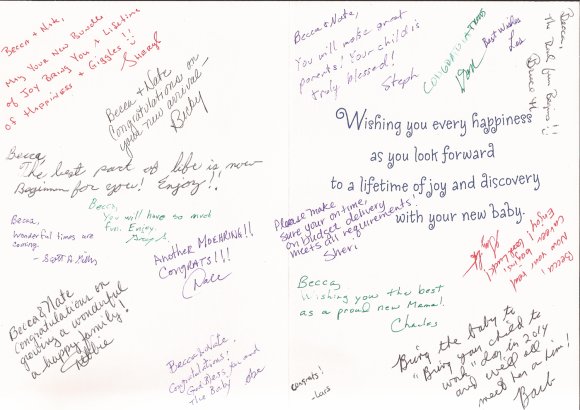 Becca + Nate,
May Your New Bundle
of Joy Bring You A Lifetime
of Happiness + Giggles!!
Sheryl
Becca + Nate
Congratulations on
your new arrival—
Becky
Becca,
The best part of life is now
Beginning for you! Enjoy!!
Becca,
You will have so much
fun. Enjoy.
Becca,
wonderful times are
coming.
- Scott A.
Another Moehring!!
Congrats!!!
Dale
Becca & Nate
Congratulations on
growing a wonderful
a happy family!
Debbie
Becca & Nate
Congratulations!
God Bless you and
The Baby
Becca + Nate,
You will make great
parents! Your child is
truly blessed!
Steph
CONGRADULATIONS
Best Wishes
Les
Becca,
The Real fun Begins!!
Bruce H
Wishing you every happiness
as you look forward
to a lifetime of joy and discovery
with your new baby.
Please make
sure your on-time,
on budget delivery
meets all requirements!
Sheri
Becca,
Now your real
career begins!
Enjoy! Good Luck!
Becca,
Wishing you the best
as a proud new Mama!
Charles
"Bring the baby to
"Bring your child to
work" day in 2014
and we'll all
meet her or him!
Barb
Congrats!
- Lois